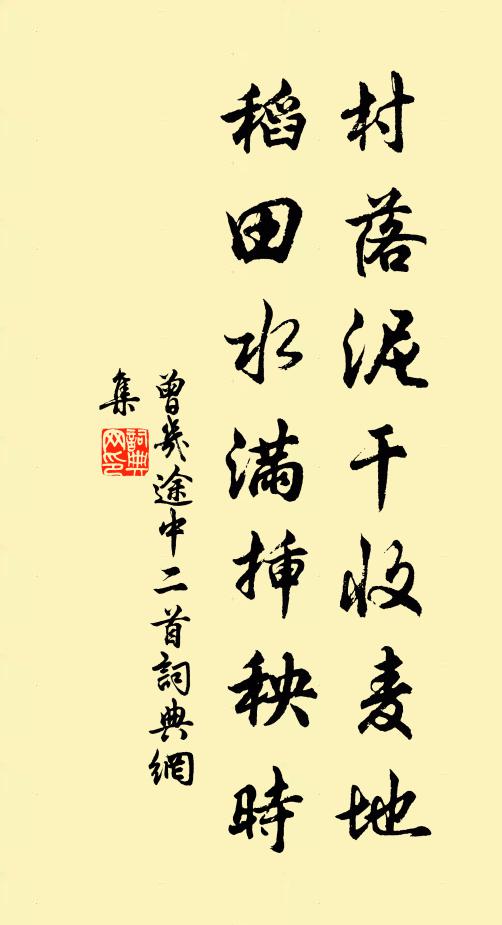 村落泥干收麦地
稻田水滿挿秧時
曾幾途中二首詞典網
集
詞典
网印